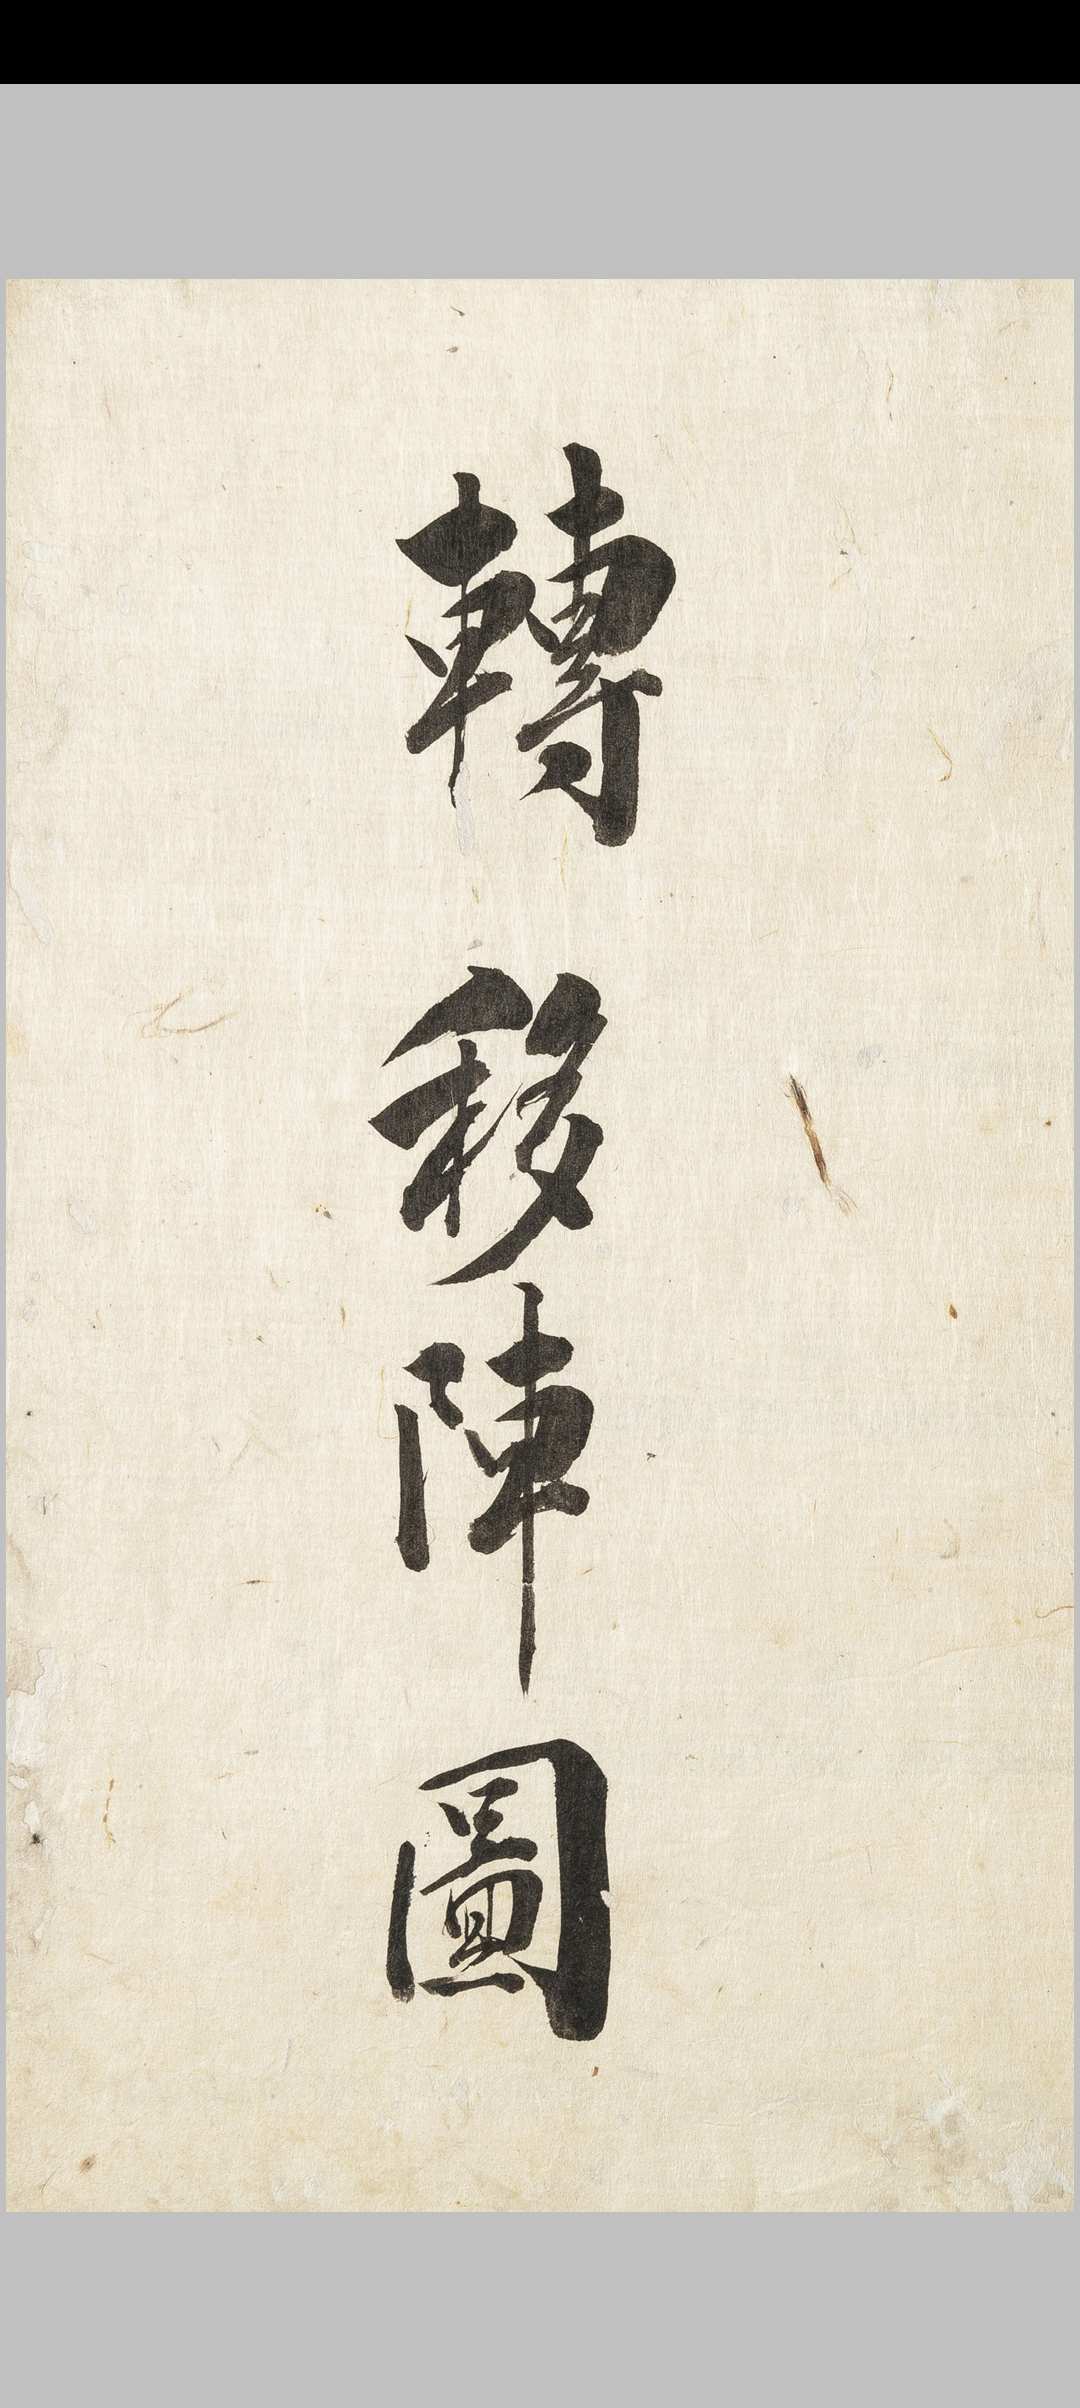 轉移陣圖